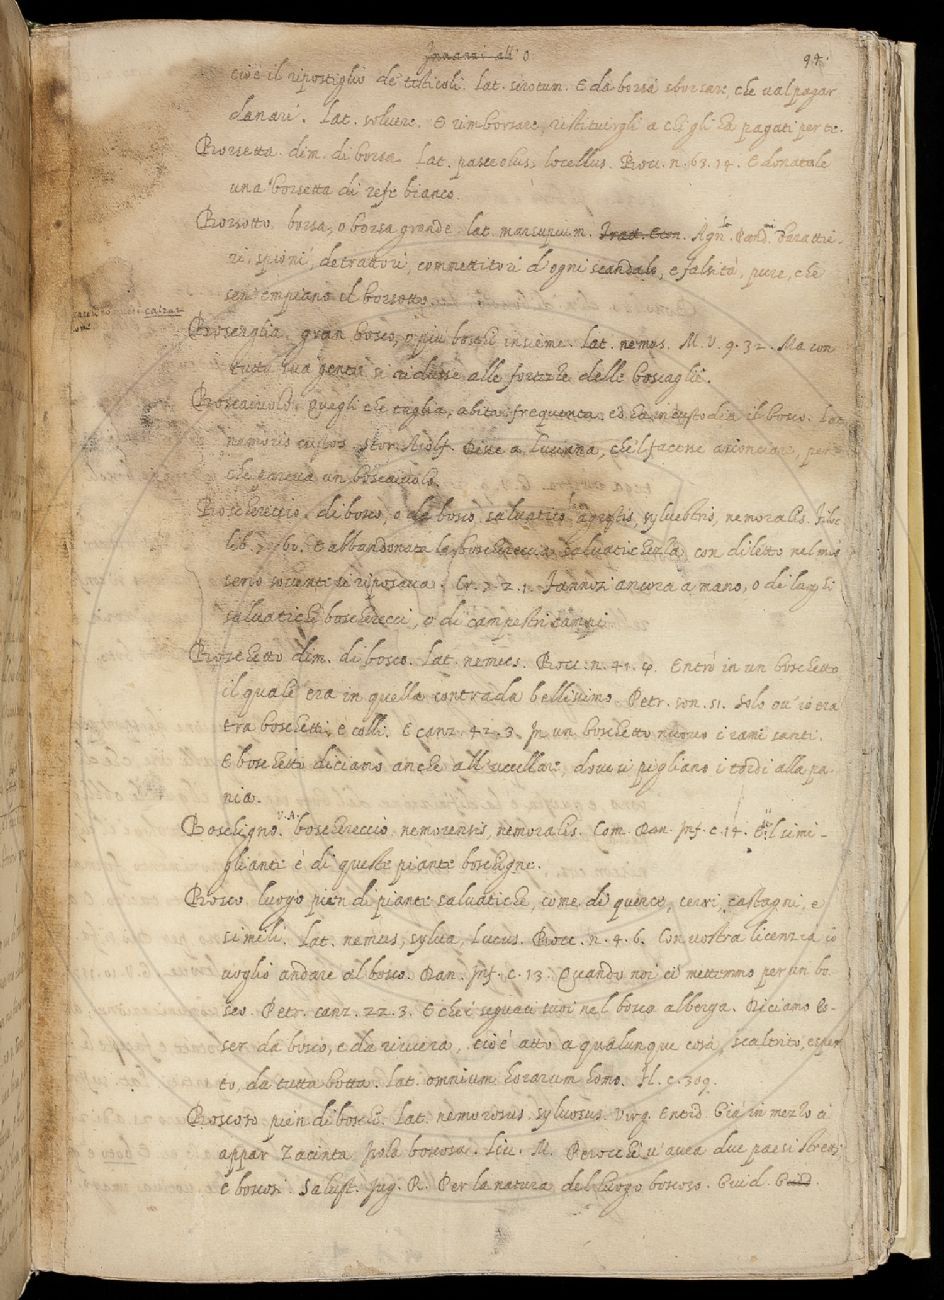 Innanzi all' O
94.
cioè il ripostiglio de' testicoli. Lat. scrotum. E da borsa sborsare, che val pagar
danari. Lat. solvere. E rimborsare, restituirgli a chi gli ha pagati per te.
Borsetta. dim. di borsa. Lat. pasceolus, locellus. Bocc. n. 63. 14. E donatale
una borsetta di refe bianco.
Borsotto. borsa, o borsa grande. lat. marsupium. Tratt. Econ. Agn. Pand. Barattie-
ri, spioni, detrattori, commettitori d'ogni scandalo, e falsità, pure, che
sen' empiano il borsotto.
Boscaglia. gran bosco, o più boschi insieme. Lat. nemus. M. V. 9. 32. Ma con
tutta sua gente si ridusse alle fortezze delle boscaglie.
Boscaiuolo. quegli che taglia, abita, frequenta, ed ha in custodia il bosco. Lat.
nemoris custos. Stor. Aiolf. Disse a Luciana, che'l facesse acconciare, per-
che pareva un boscaiuolo.
Boschereccio. di bosco, o da bosco, salvatico. agrestis, sylvestris, nemoralis. Filoc.
lib. 7. 60. E abbandonata la boschereccia salvatichezza, con diletto nel mis
serio sovente si riposava. Cr. 2. 2. Fannosi ancora a mano, o de luoghi
salvatichi boscherecci, o di campestri
Boschetto dim. di bosco. Lat. nemus. Bocc. n. 41. 4. Entrò in un boschetto,
il quale era in quella contrada bellissimo. Petr. son. 51. Solo ov' io era
tra boschetti, e colli. E canz. 42. 3. In un boschetto nuovo i rami santi.
E boschetto diciamo anche all' uccellare, dove si pigliano i tordi alla pa-
nia.
Boschigno. V. A. boschereccio. nemorensis, nemoralis. Com. Dan. Inf. c. 14. E il simi-
gliante è di queste piante boschigne.
Bosco. luogo pien di piante salvatiche, come di querce, cerri, castagni, e
simili. Lat. nemus, sylva, Lucus. Bocc. n. 4. 6. Con vostra licenzia io
voglio andare al bosco. Dan. Inf. c. 13. Quando noi ci mettemmo per un bo-
sco. Petr. canz. 22. 3. E che i seguaci tuoi nel bosco alberga. Diciamo Es-
ser da bosco, e da riviera, cioè atto a qualunque cosa, scaltrito, esper
to, da tutta botta. Lat. omnium horarum homo. Fl. c. 309.
Boscoso pien di boschi. Lat. nemorosus. sylvosus. Virg. Eneid. Già in mezzo ci
appar Zacinta Isola boscosa. Liv. M. Perocchè v'avea due paesi stretti
e boscosi. Salust. Iug. R. Per la natura del luogo boscoso.